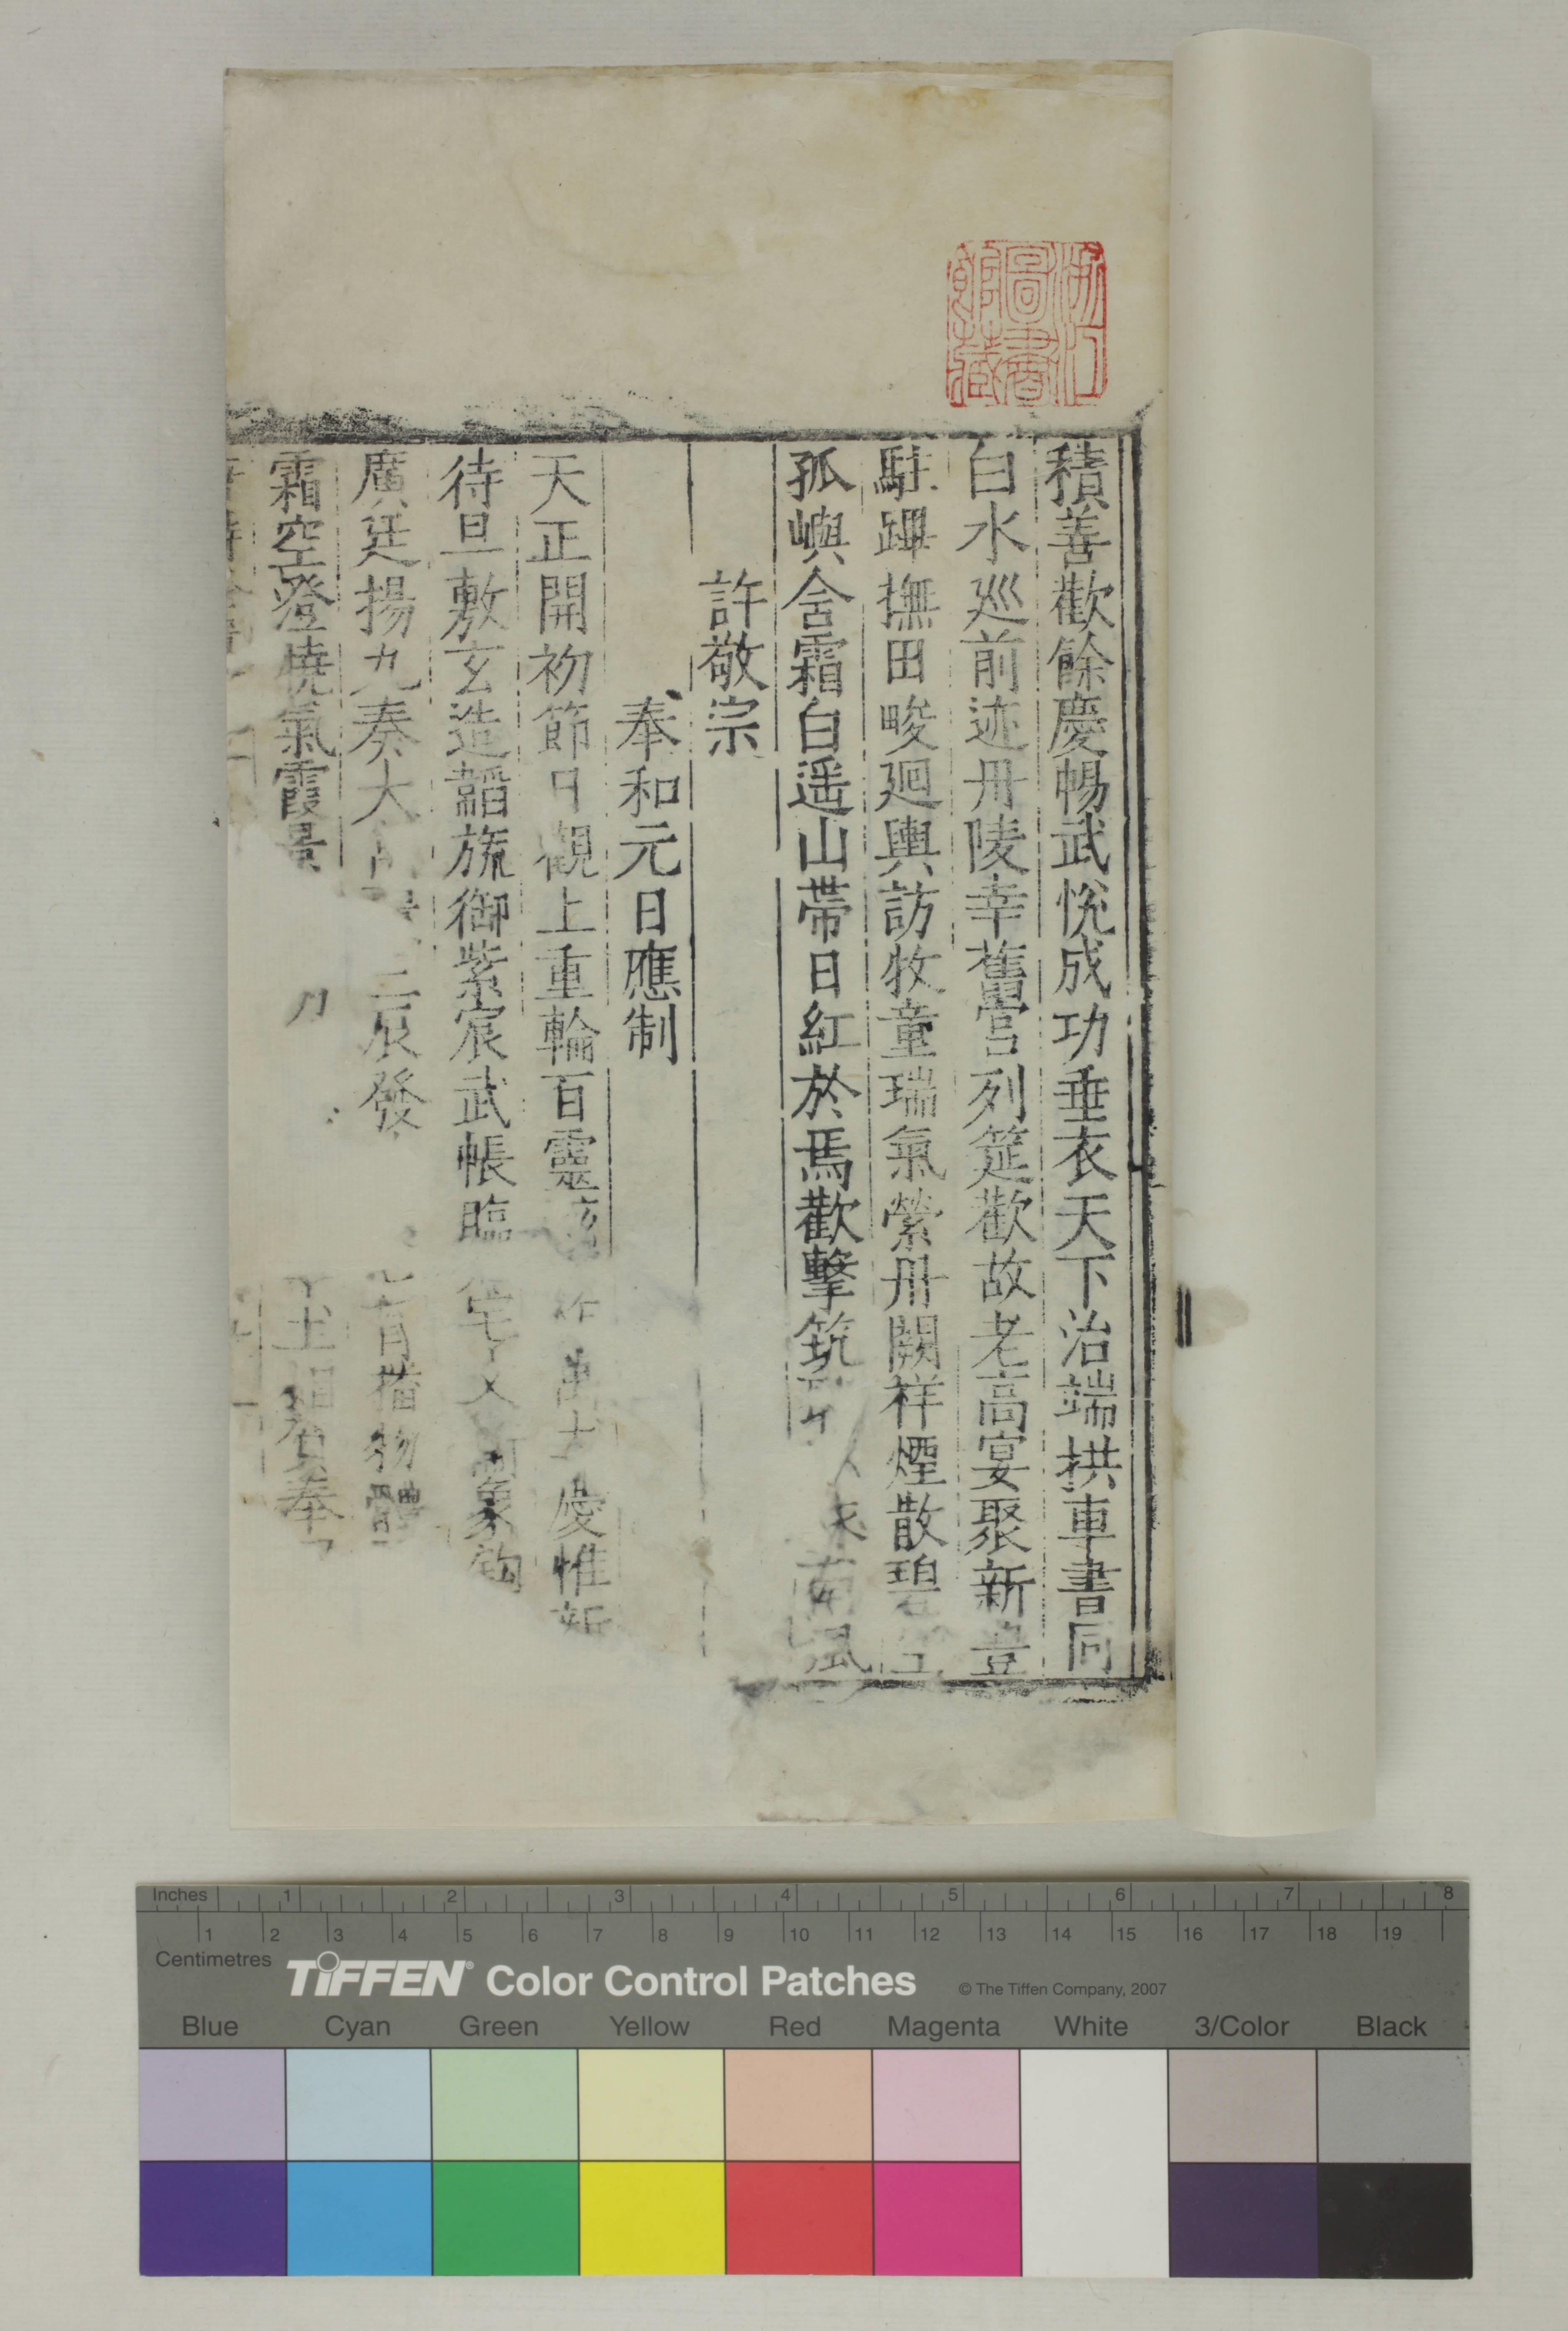 浙江圖書館藏
積善歡餘慶暢武恱成功垂衣天下治端拱車書同
白水廵前迹丹陵幸舊宮列筵歡故老高宴聚新豊
駐蹕撫田畯廻輿訪牧童瑞氣縈丹闕祥煙散碧空
孤嶼含霜白遥山帶日紅於焉歡擊筑南風
許敬宗
奉和元日應制
天正開初節日觀上重輪百靈慶惟新
待旦敷玄造韜旒御紫宸武帳臨宅象鈎
廣廷揚九奏大辰發育播物體
霜空澄曉氣霞景土奉
Inches 1 2 3 4 5 6 7 8
1 2 3 4 5 6 7 8 9 10 11 12 13 14 15 16 17 18 19
Centimetres
TIFFEN® Color Control Patches © The Tiffen Company, 2007
Blue Cyan Green Yellow Red Magenta White 3/Color Black